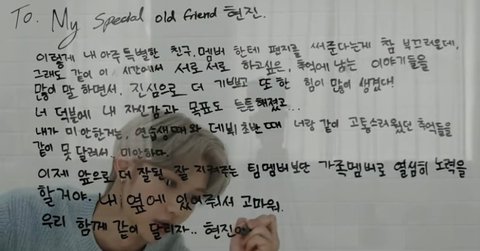 To. My Special old friend 현진.
이렇게 내 아주 특별한 친구, 멤버 한테 편지를 써준다는게 참 부끄러운데,
그래도 같이 이 시간에서 서로 서로 하고싶은, 추억에 남는 이야기들을
많이 말 하면서, 진심으로 더 기쁘고 또한 힘이 많이 생겼다!
너 덕분에 내 자신감과 목표도 튼튼해졌고...
내가 미안한게는, 연습생때와 데뷔초반때 너랑 같이 고통스러웠던 추억들을
같이 못 달려서, 미안하다.
이제 앞으로 더 잘 된, 잘 지켜주는 팀멤버보단 가족멤버로 열심히 노력을
할거야. 내 옆에 있어줘서 고마워.
우리 함께 같이 달리자.. 현진아